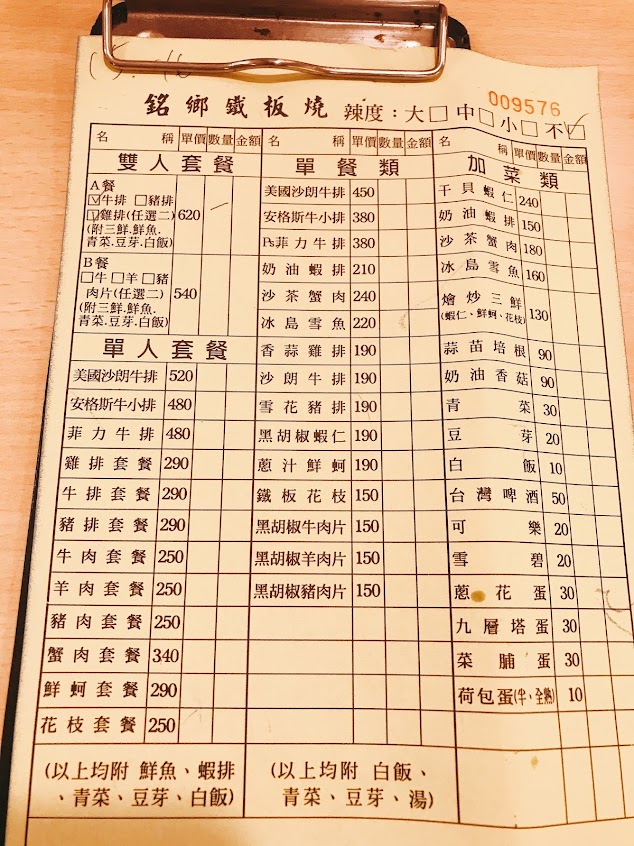 009576
銘鄉鐵板燒 辣度：大□ 中□ 小□ 不□
名稱 單價 數量 金額 名稱 單價 數量 金額 名稱 單價 數量 金額
雙人套餐
A餐
☑牛排 □豬排
☑雞排(任選二)
(附三鮮.鮮魚.
青菜.豆芽.白飯)
620
B餐
□牛 □羊 □豬
肉片(任選二)
(附三鮮.鮮魚.
青菜.豆芽.白飯)
540
單人套餐
美國沙朗牛排 520
安格斯牛小排 480
菲力牛排 480
雞排套餐 290
牛排套餐 290
豬排套餐 290
牛肉套餐 250
羊肉套餐 250
豬肉套餐 250
蟹肉套餐 340
鮮蚵套餐 290
花枝套餐 250
(以上均附 鮮魚、蝦排
、青菜、豆芽、白飯)
單餐類
美國沙朗牛排 450
安格斯牛小排 380
Ps菲力牛排 380
奶油蝦排 210
沙茶蟹肉 240
冰島雪魚 220
香蒜雞排 190
沙朗牛排 190
雪花豬排 190
黑胡椒蝦仁 190
蔥汁鮮蚵 190
鐵板花枝 150
黑胡椒牛肉片 150
黑胡椒羊肉片 150
黑胡椒豬肉片 150
(以上均附 白飯、
青菜、豆芽、湯)
加菜類
干貝蝦仁 240
奶油蝦排 150
沙茶蟹肉 180
冰島雪魚 160
燴炒三鮮 130
(蝦仁、鮮蚵、花枝)
蒜苗培根 90
奶油香菇 90
青菜 30
豆芽 20
白飯 10
台灣啤酒 50
可樂 20
雪碧 20
蔥花蛋 30
九層塔蛋 30
菜脯蛋 30
荷包蛋(半、全熟) 10